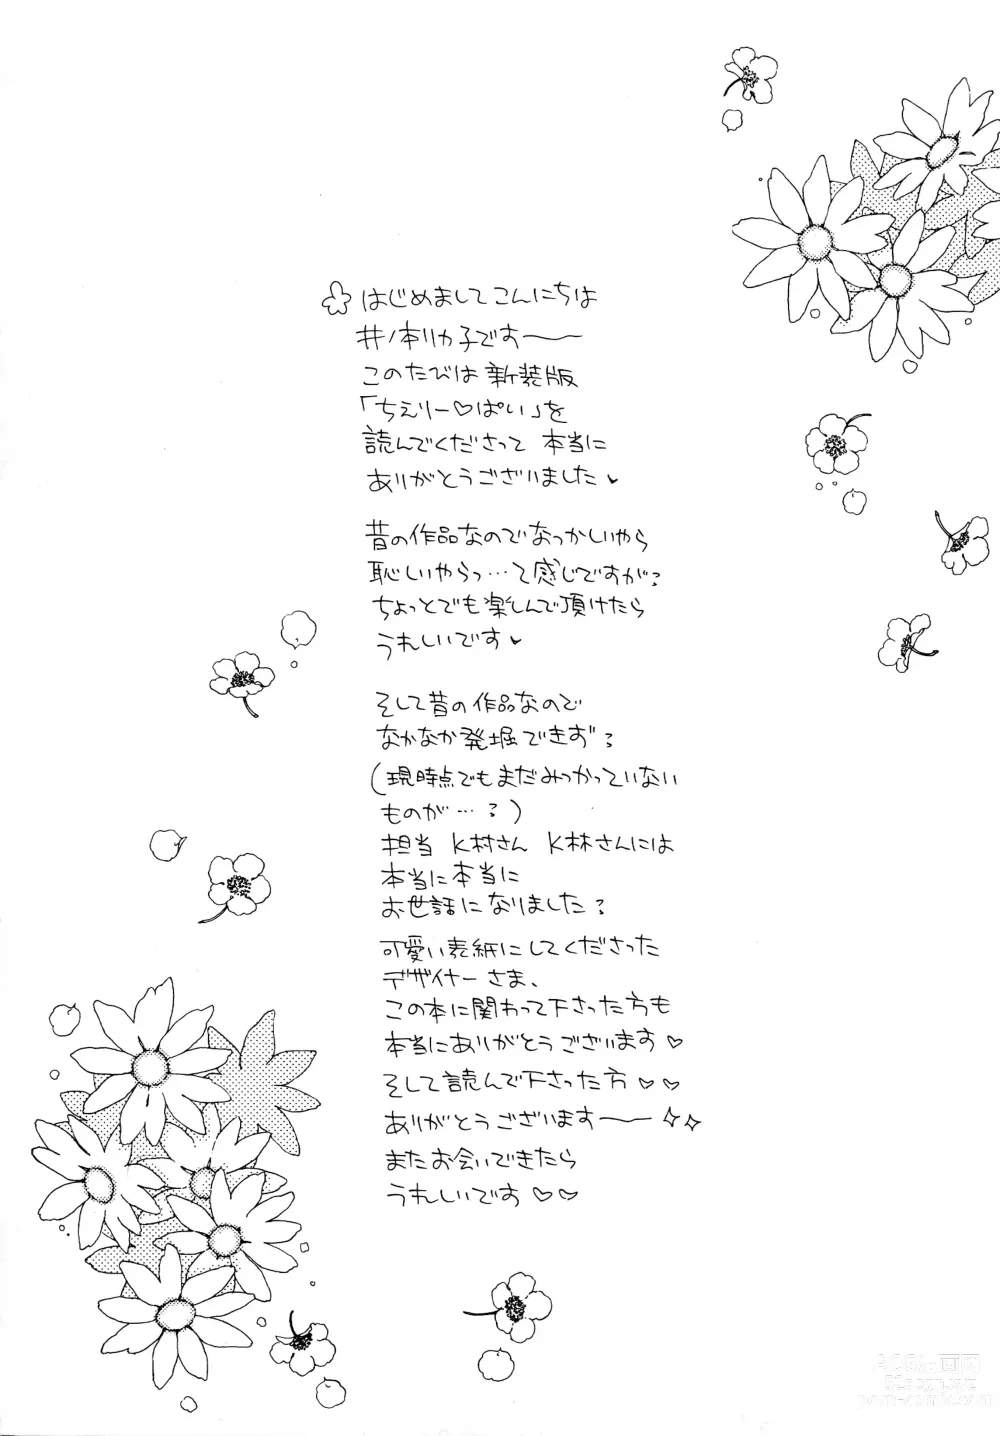 はじめましてこんにちは
井ノ本リカ子です――
このたびは新装版
「ちぇりー♡ぱい」を
読んでくださって 本当に
ありがとうございました♥
昔の作品なのでなつかしいやら
恥しいやらっ…て感じですが？
ちょっとでも楽しんで頂けたら
うれしいです♥
そして昔の作品なので
なかなか発掘できず？
(現時点でもまだみつかっていない
ものが…？)
担当 K村さん K林さんには
本当に本当に
お世話になりました？
可愛い表紙にしてくださった
デザイナーさま、
この本に関わって下さった方も
本当にありがとうございます♡
そして読んで下さった方♡♡
ありがとうございます――✧✧
またお会いできたら
うれしいです♡♡